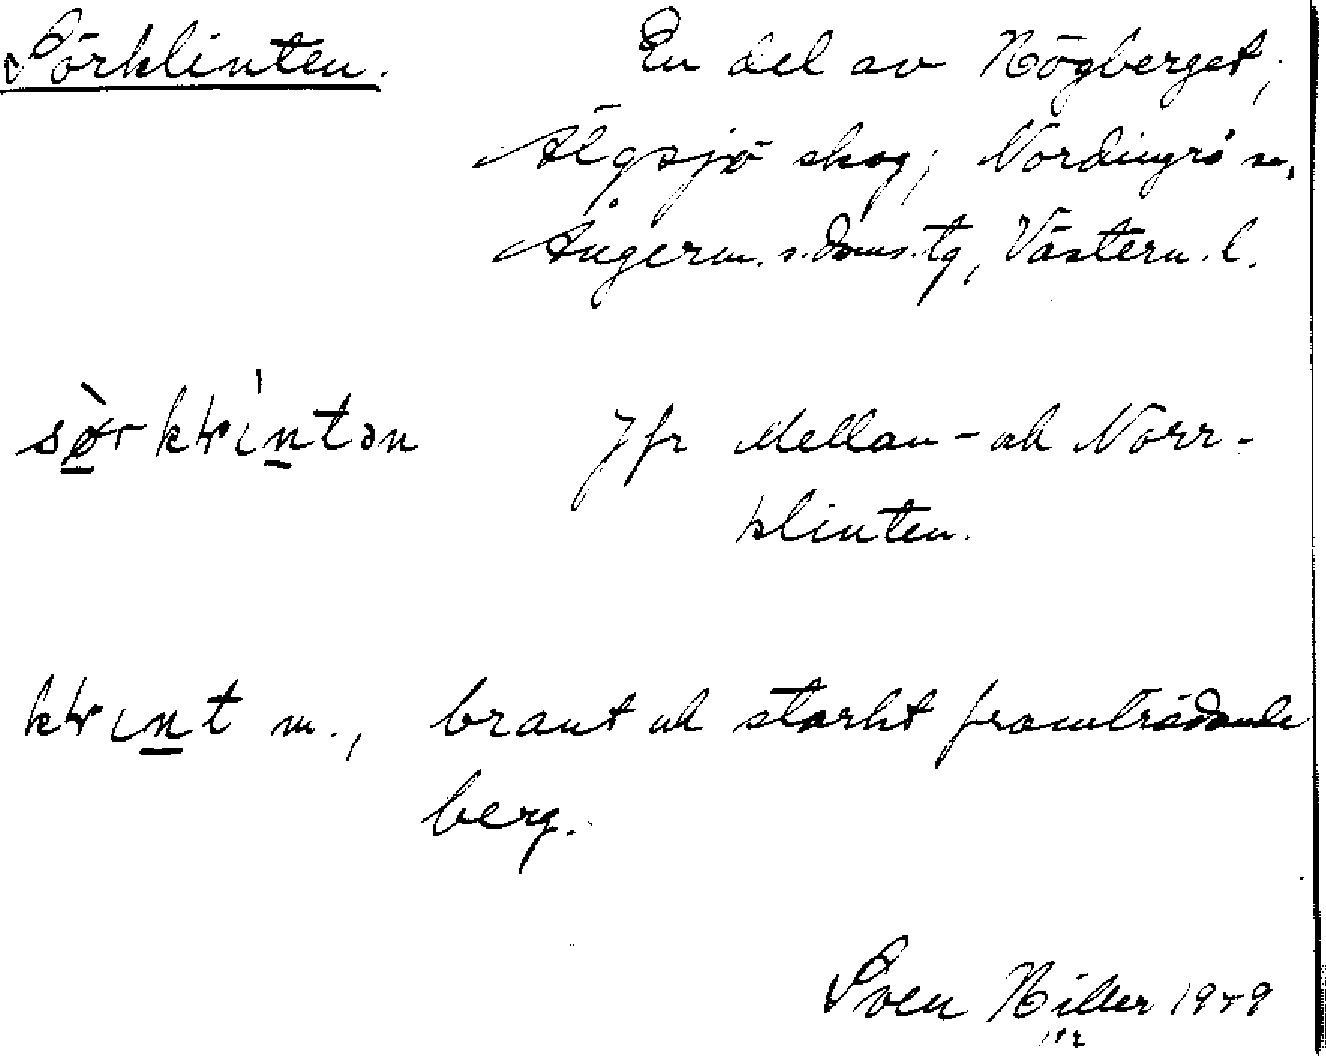 Sörklinten. En del av Högberget,
Älgsjö skog; Nordingrå sn,
Ångerm. s. doms.tg, Västern. l.
sø̀rkḷıntən Jfr Mellan- och Norr-
klinten.
kḷınt m., brant och starkt framträdande
berg.
Sven Hiller 1949